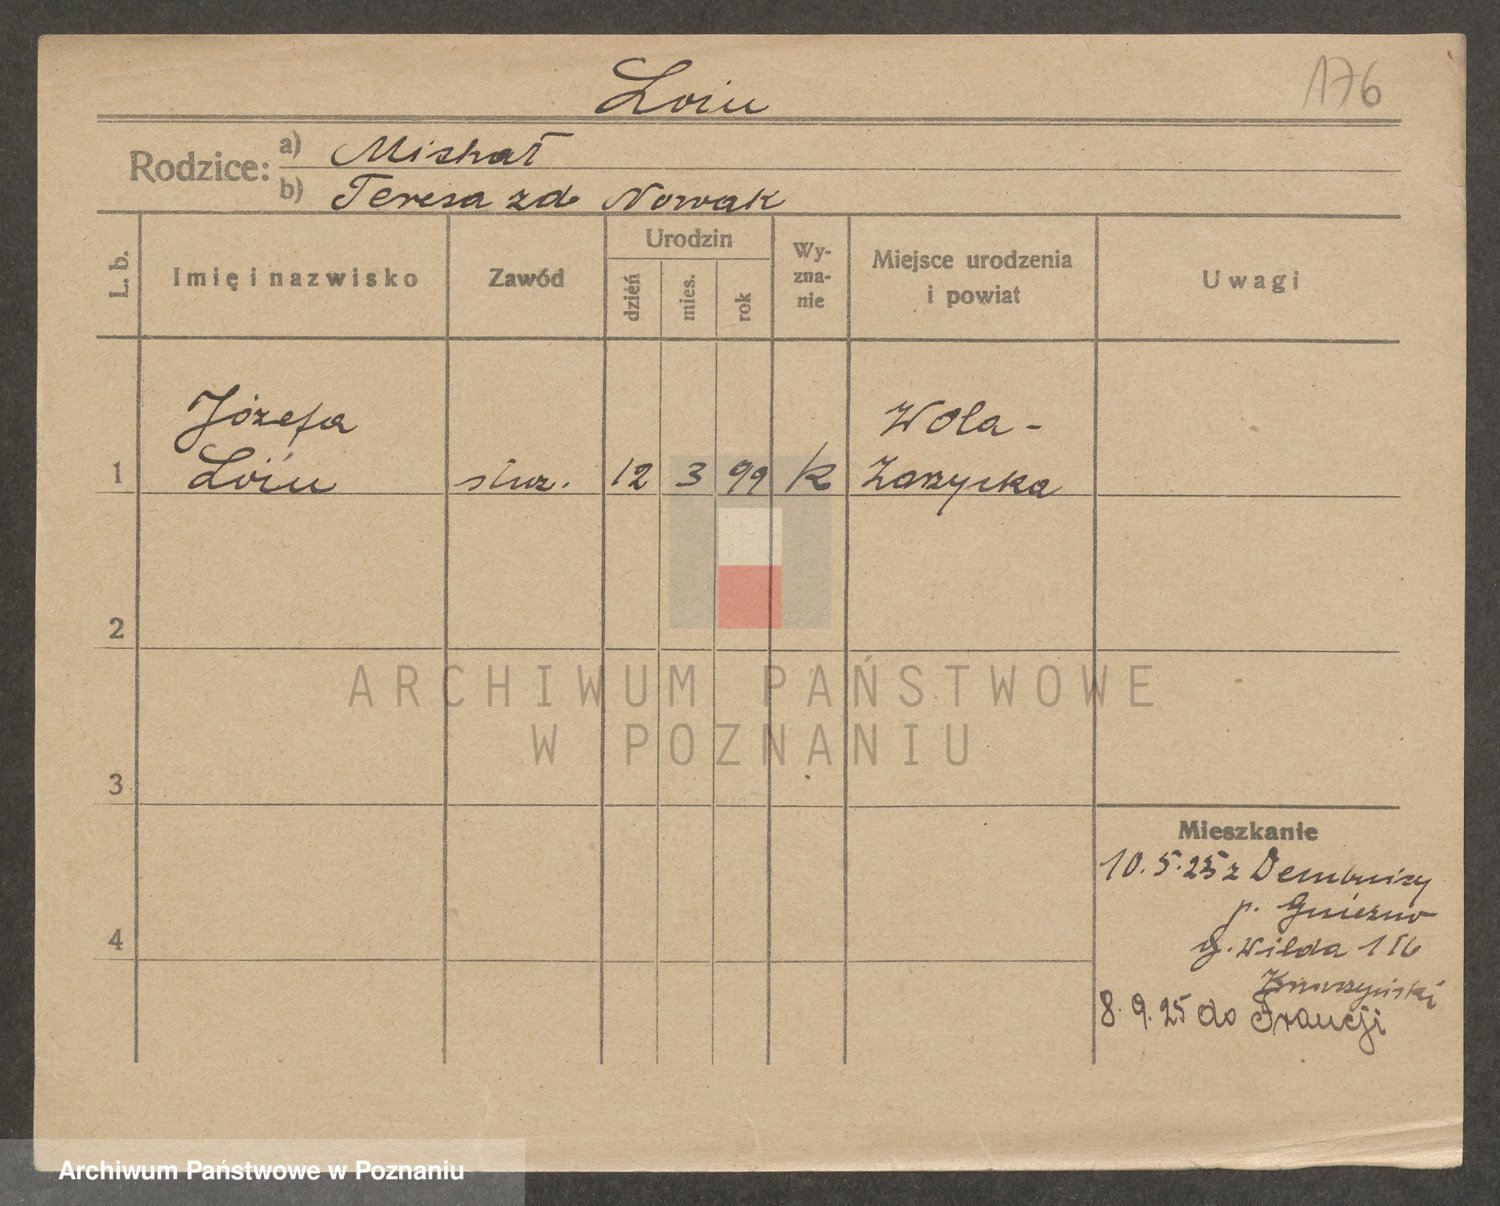 Loiu
176
Rodzice:
a) Michał
b) Teresa zd Nowak
L. b.
Imię i nazwisko
Zawód
Urodzin
dzień
mies.
rok
Wy-
zna-
nie
Miejsce urodzenia
i powiat
Uwagi
Józefa
Wola -
1 służ. 12 3 99 k Zarzycka
2
ARCHIWUM PAŃSTWOWE
W POZNANIU
3
Mieszkanie
10.5.25 z
4
p. Gniezno
g. Wilda 116
8.9.25 do Francji
Archiwum Państwowe w Poznaniu